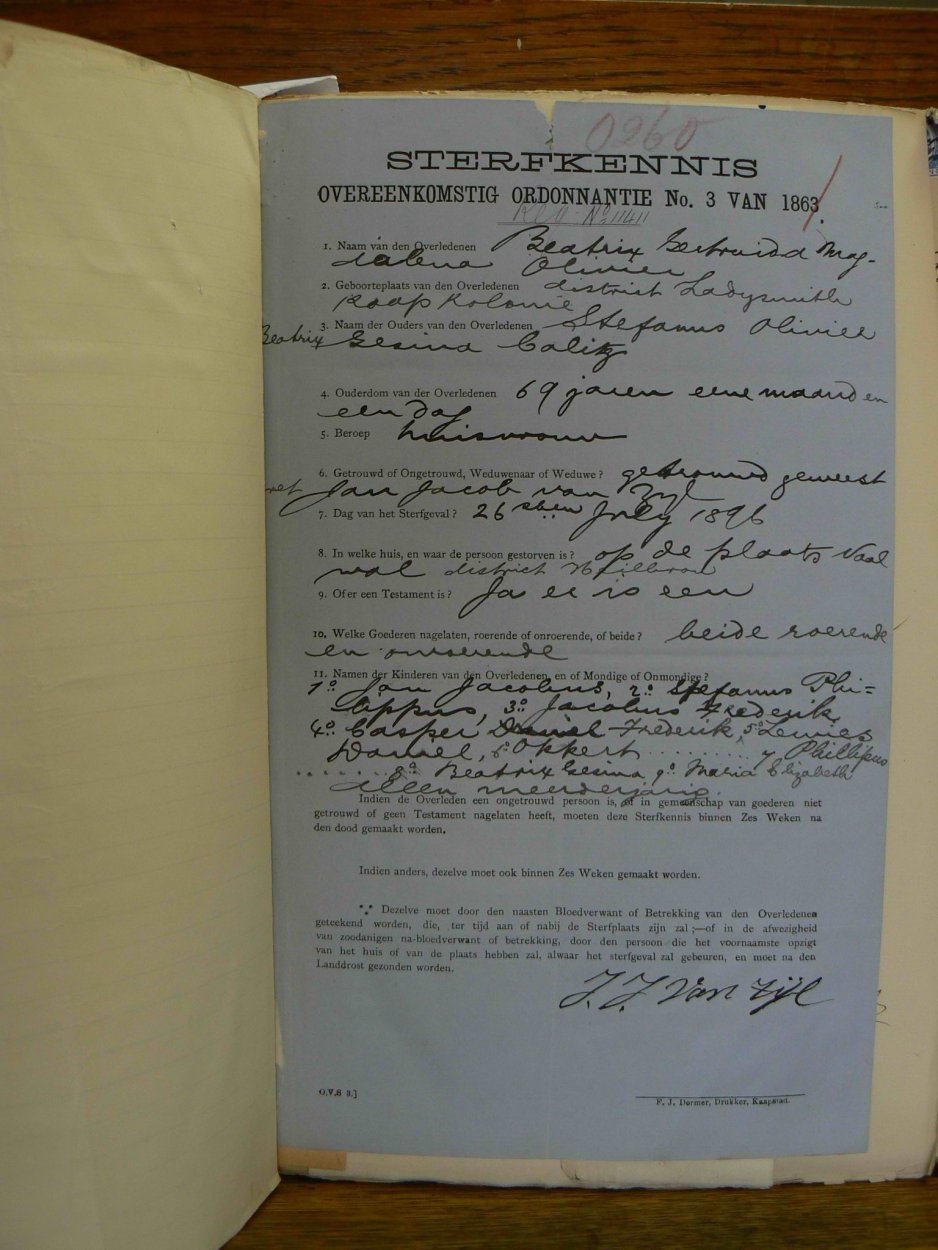 0260
STERFKENNIS
OVEREENKOMSTIG ORDONNANTIE No. 3 VAN 1863.
No 11411
1. Naam van den Overledenen Beatrix Gertruida Mag-
dalena Olivier
2. Geboorteplaats van den Overledenen district Ladysmith
Kaap Kolonie
3. Naam der Ouders van den Overledenen Stefanus Olivier
Beatrix Gesina Calitz
4. Ouderdom van der Overledenen 69 jaren eene maand en
een dag
5. Beroep huisvrouw
6. Getrouwd of Ongetrouwd, Weduwenaar of Weduwe? getrouwd geweest
met Jan Jacob van Zyl
7. Dag van het Sterfgeval? 26sten July 1896
8. In welke huis, en waar de persoon gestorven is? op de plaats Vaal
wal district Heilbron
9. Of er een Testament is? Ja er is een
10. Welke Goederen nagelaten, roerende of onroerende, of beide? beide roerende
en onroerende
11. Namen der Kinderen van den Overledenen, en of Mondige of Onmondige?
1o. Jan Jacobus, 2o. Stefanus Phi=
lippus, 3o. Jacobus Frederik
4o. Casper Daniel Frederik, 5o Lewies
Daniel, 6o Okkert ......... 7 Phillipus
........ 8o Beatrix Gesina, 9o. Maria Elizabeth
allen meerderjarig.
Indien de Overleden een ongetrouwd persoon is, of in gemeenschap van goederen niet
getrouwd of geen Testament nagelaten heeft, moeten deze Sterfkennis binnen Zes Weken na
den dood gemaakt worden.
Indien anders, dezelve moet ook binnen Zes Weken gemaakt worden.
*** Dezelve moet door den naasten Bloedverwant of Betrekking van den Overledenen
geteekend worden, die, ter tijd aan of nabij de Sterfplaats zijn zal;—of in de afwezigheid
van zoodanigen na-bloedverwant of betrekking, door den persoon die het voornaamste opzigt
van het huis of van de plaats hebben zal, alwaar het sterfgeval zal gebeuren, en moet na den
Landdrost gezonden worden.
J. J. Van Zijl
O.V.S 3.]
F. J. Dormer, Drukker, Kaapstad.